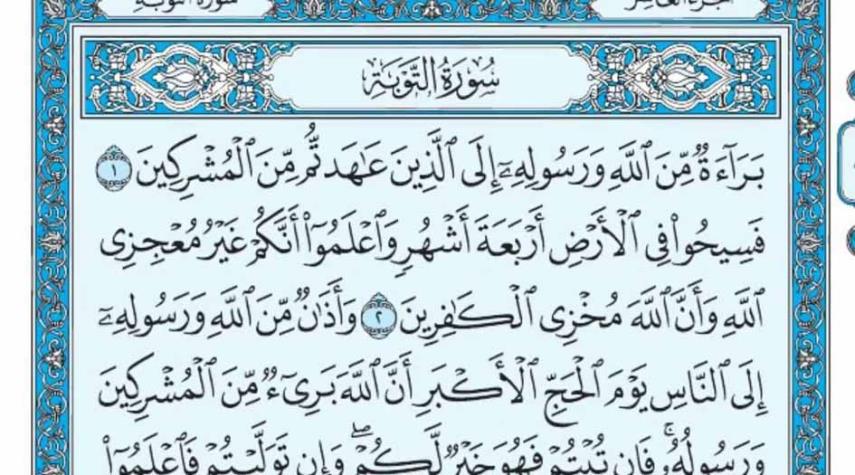 سورة التوبة الجزء العاشر
سُورَةُ التَّوْبَةِ
بَرَآءَةٌ مِّنَ ٱللَّهِ وَرَسُولِهِۦٓ إِلَى ٱلَّذِينَ عَٰهَدتُّم مِّنَ ٱلْمُشْرِكِينَ ١
فَسِيحُوا۟ فِى ٱلْأَرْضِ أَرْبَعَةَ أَشْهُرٍ وَٱعْلَمُوٓا۟ أَنَّكُمْ غَيْرُ مُعْجِزِى
ٱللَّهِ وَأَنَّ ٱللَّهَ مُخْزِى ٱلْكَٰفِرِينَ ٢ وَأَذَٰنٌ مِّنَ ٱللَّهِ وَرَسُولِهِۦٓ
إِلَى ٱلنَّاسِ يَوْمَ ٱلْحَجِّ ٱلْأَكْبَرِ أَنَّ ٱللَّهَ بَرِىٓءٌ مِّنَ ٱلْمُشْرِكِينَ
وَرَسُولُهُۥ ۚ فَإِن تُبْتُمْ فَهُوَ خَيْرٌ لَّكُمْ ۖ وَإِن تَوَلَّيْتُمْ فَٱعْلَمُوٓا۟